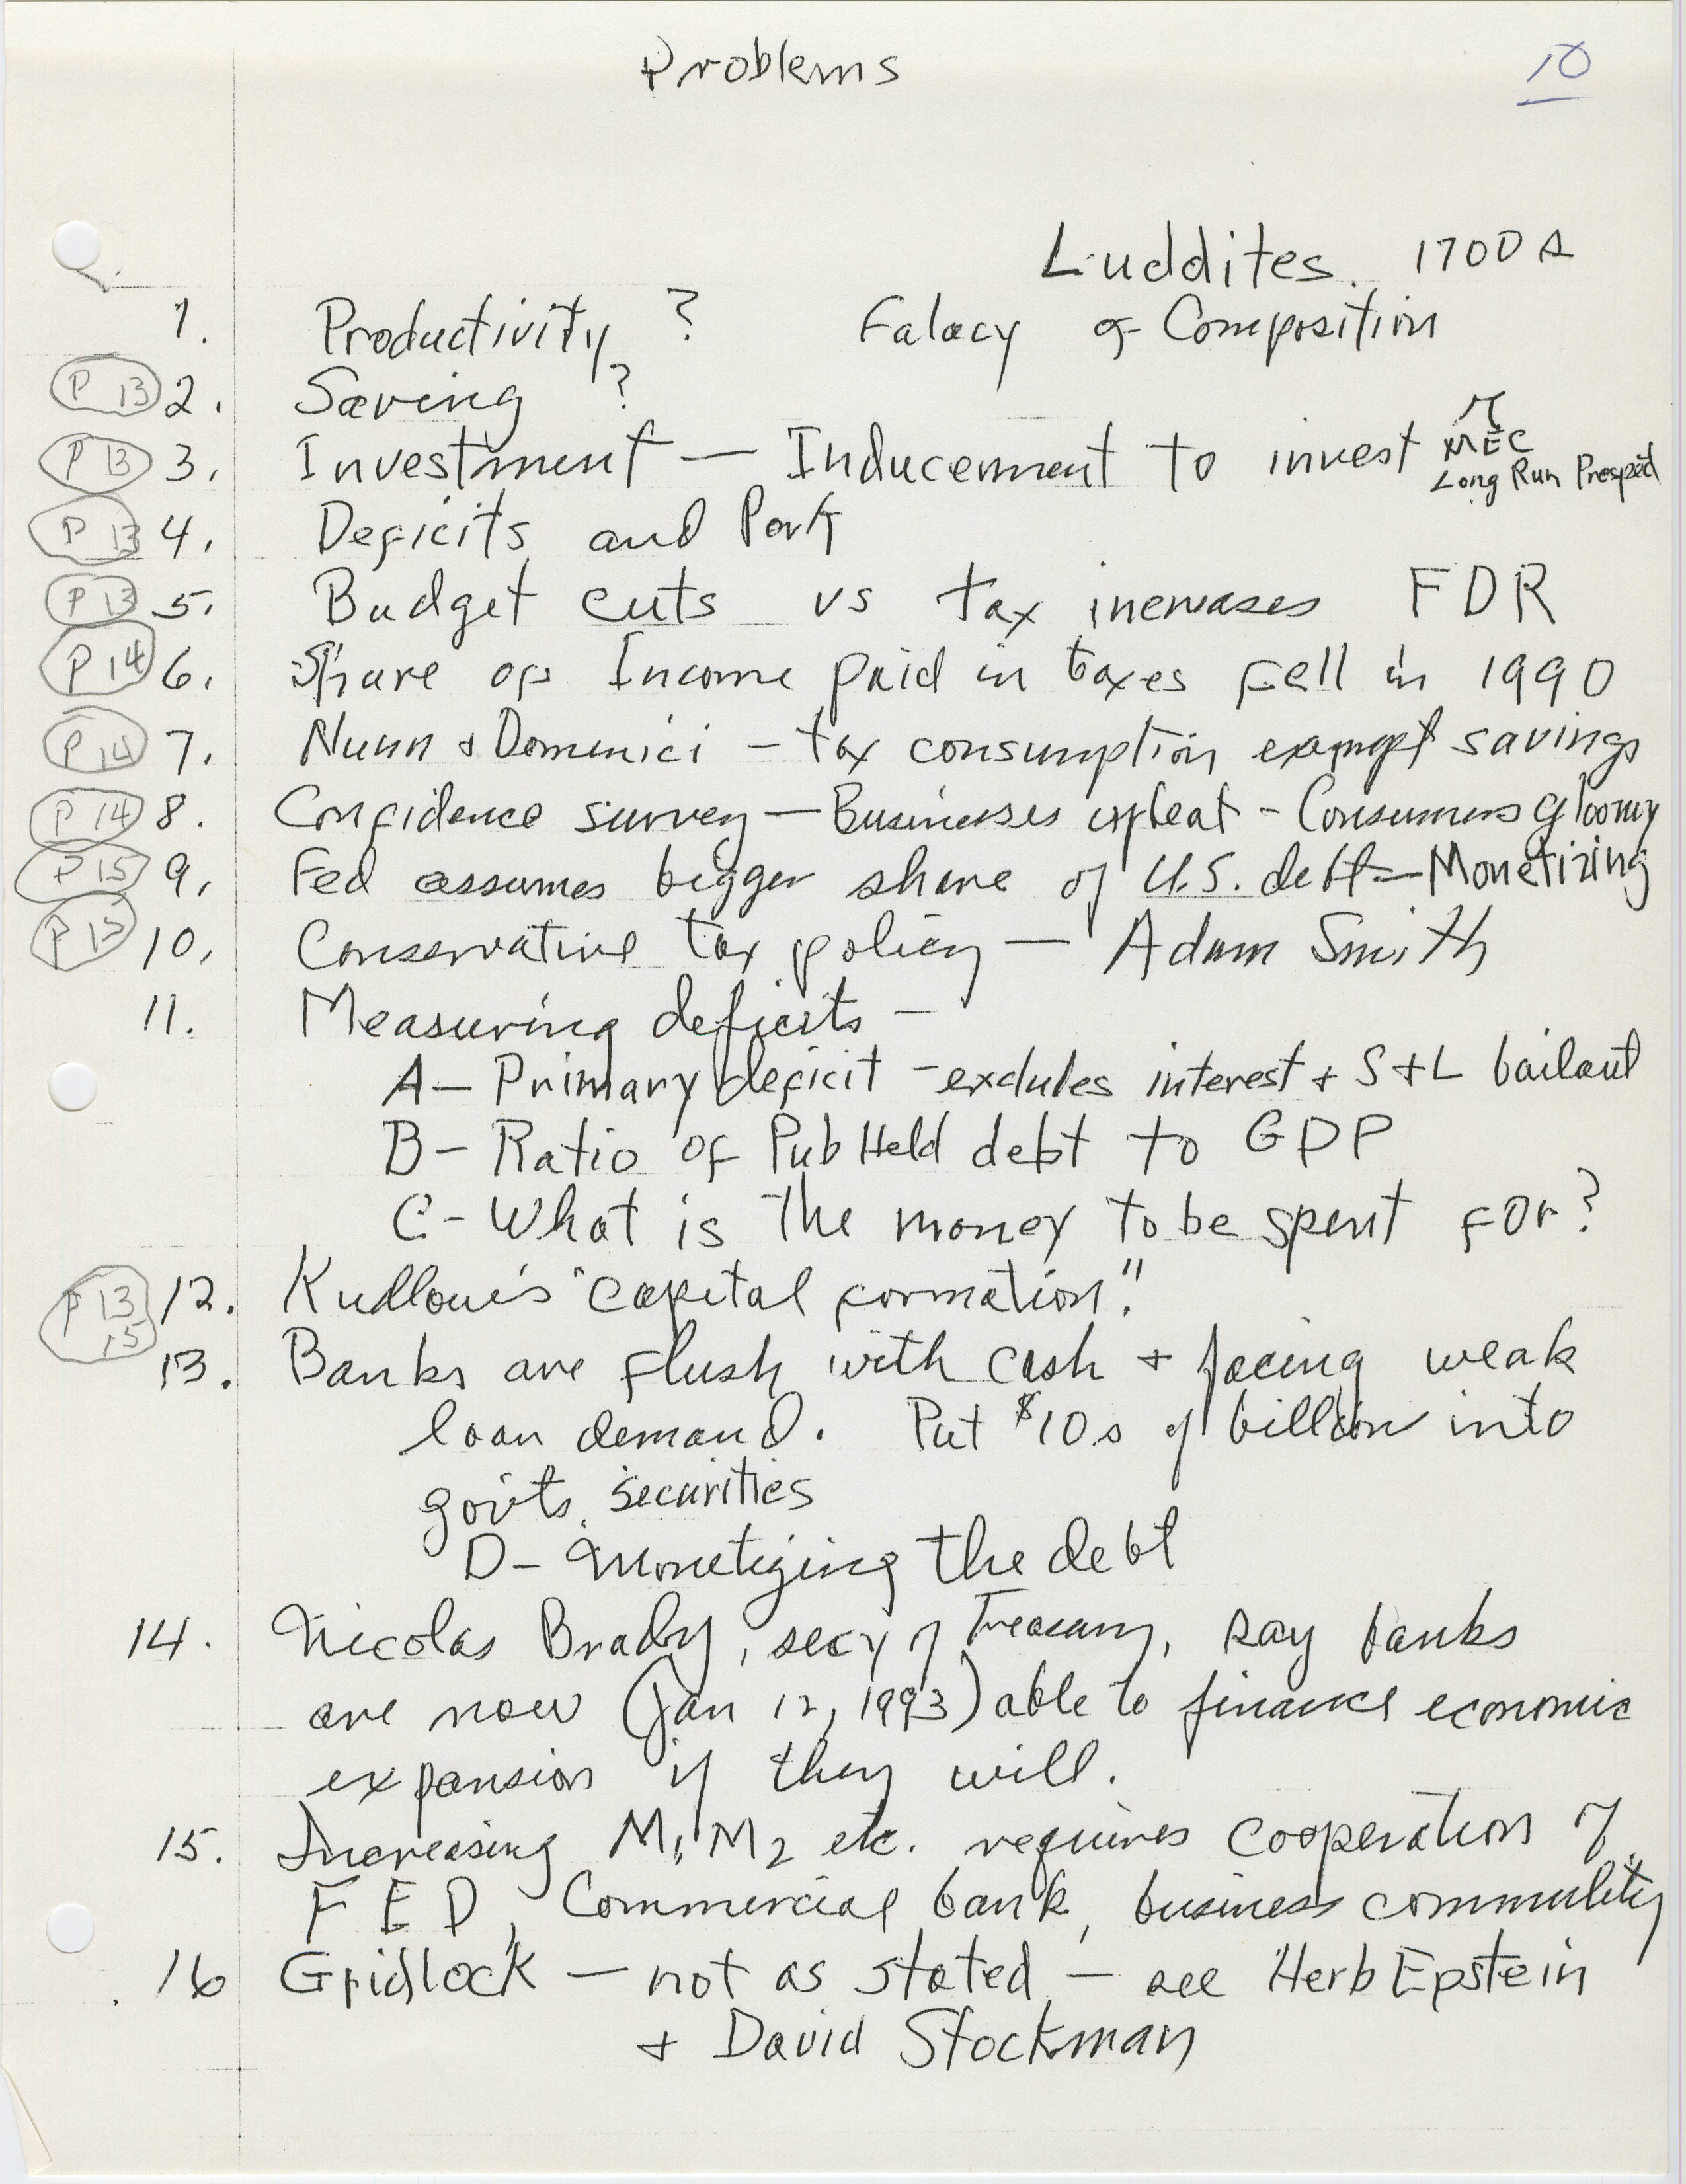 Problems
10
Luddites. 1700s
1. Productivity? Falacy of Composition
P 13 2. Saving?
P 13 3. Investment — Inducement to invest MEC
Long Run Prospect
P 13 4. Deficits and Pork
P 13 5. Budget cuts vs tax increases FDR
P 14 6. Share of Income paid in taxes fell in 1990
P 14 7. Nunn & Domenici - tax consumption exampt savings
P 14 8. Confidence survey — Businesses upbeat - Consumers gloomy
P 15 9. Fed assumes bigger share of U.S. debt — Monetizing
P 15 10. Conservative tax policy — Adam Smith
11. Measuring deficits -
A — Primary deficit - excludes interest + S+L bailout
B - Ratio of Pub Held debt to GDP
C - What is the money to be spent for?
P 13 15 12. Kudlow's "capital formation."
13. Banks are flush with cash + facing weak
loan demand. Put $10s of billions into
gov'ts. securities
D - Monetizing the debt
14. Nicolas Brady, secy of Treasury, say banks
are now (Jan 12, 1993) able to finance economic
expansion if they will.
15. Increasing M1, M2 etc. requires cooperation of
FED, Commercial bank, business community
16 Gridlock — not as stated — see Herb Epstein
+ David Stockman